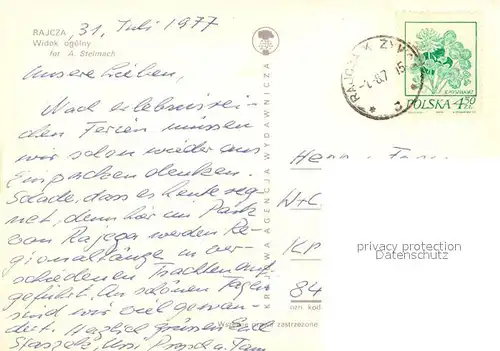 RAJCZA 31. Juli 1977
Widok ogólny
fot. A. Stelmach
Unsere Lieben,
Nach erlebnisrei-
den Ferien müssen
wir schon wieder ans
Einpacken denken.
Schade, dass es heute reg-
net, denn hier im Park
von Rajcza werden Re-
gionaltänze in ver-
schiedenen Trachten auf
geführt. An schönen Tagen
sind wir viel gewan-
dert. Herzlich grüssen Euch
Staszek, Ursi
KRAJOWA AGENCJA WYDAWNICZA
RAJCZA K. ŻYWCA
-1.-8.7 15
POLSKA 4,50 ZŁ
Herrn + Frau
W+C
KP
84
privacy protection
Datenschutz